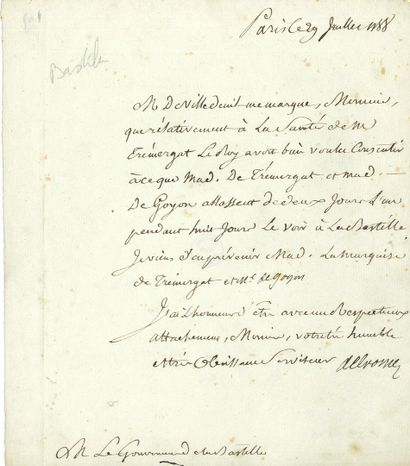 Paris Ce 29 Juillet 1788
Bastille
M De Villedeuil me marque, Monsieur,
que rélativement à La Santé de M
Trémergat Le Roy avoit bien voulu Consentir
à ce que Mad. De Trémergat et mad.
De Goyon allassent de deux Jours L'un
pendant huit Jours Le voir à La Bastille
Je viens d'en prévenir Mad. La marquise
de Trémergat et Me. de Goyon
J'ai L'honneur d'être avec un Respectueux
attachement, Monsieur, votre très humble
et très Obéissant Serviteur deCrosne
M Le Gouverneur de la Bastille